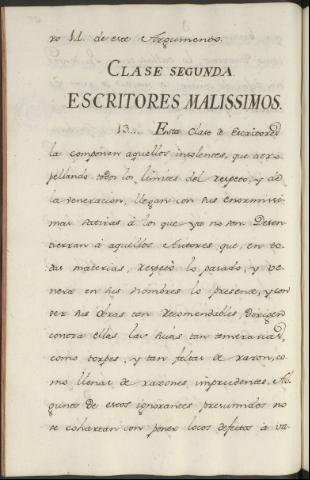 ro 11. de este Argumento.
CLASE SEGUNDA.
ESCRITORES MALISSIMOS.
13... Esta Clase de Escritores
la componen aquellos insolentes, que atro-
pellando todos los limites del respeto, y de
la veneracion, llegan con sus enormissi-
mas satiras à los que ya no son. Desen-
tierran à aquellos Autores que, en to-
das materias, respetò lo pasado, y ve-
nera en sus nombres lo presente, y con
ser sus obras tan recomendables, dirigen
contra ellas las suias tan temerarias,
como torpes, y tan faltas de razon, co-
mo llenas de razones imprudentes. Al-
gunos de estos ignorantes presumidos no
se cohartan con poner locos defectos à va-